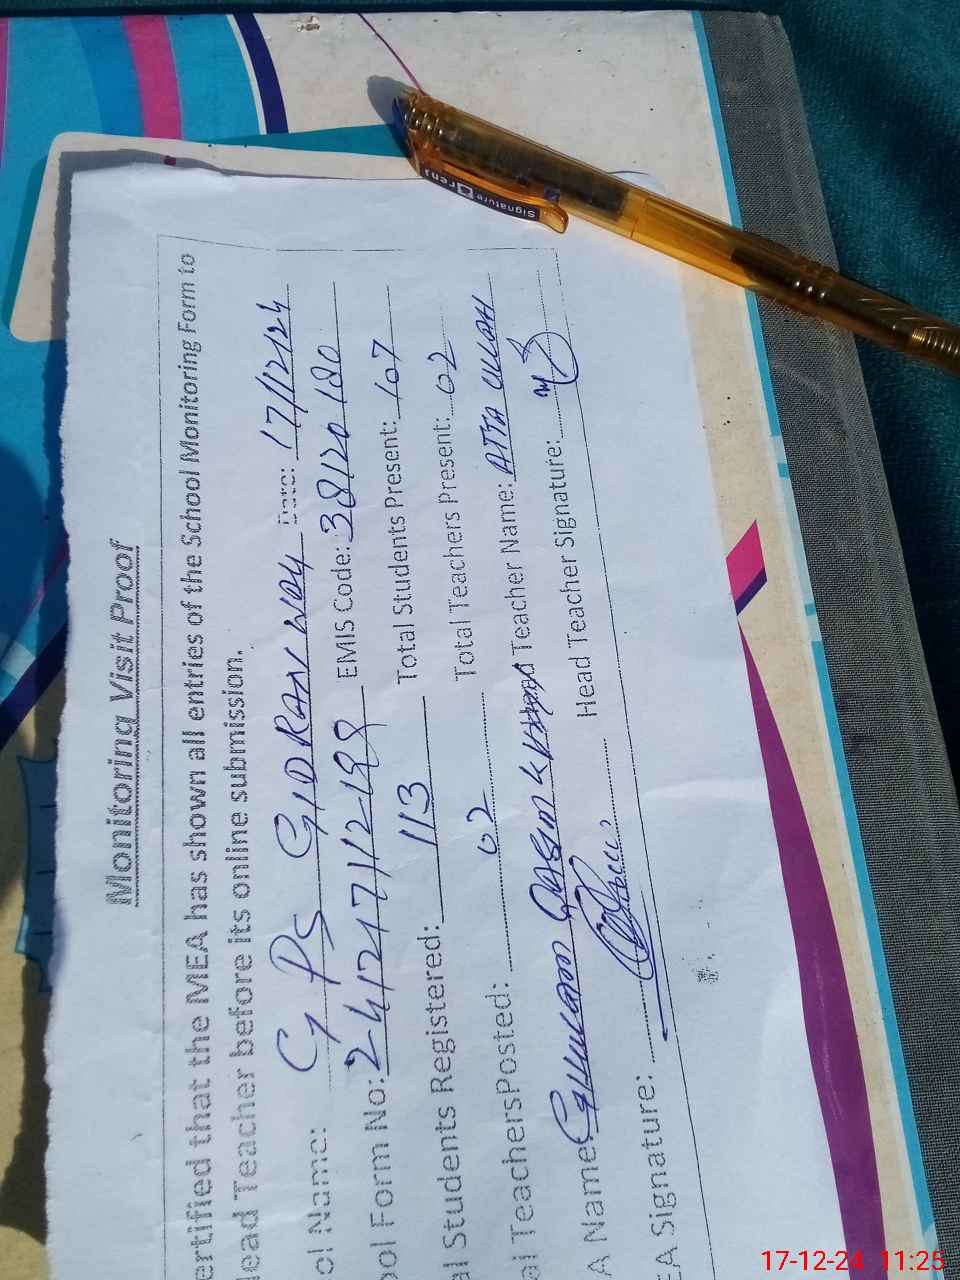 Monitoring Visit Proof
ertified that the MEA has shown all entries of the School Monitoring Form to
lead Teacher before its online submission.
ol Name: GPS GIDRANWAY Date: 17/12/24
ool Form No: 241217112-188 EMIS Code: 38120180
al Students Registered: 113 Total Students Present: 107
al TeachersPosted: 02 Total Teachers Present: 02
A Name: Ghulam Qasim Head Teacher Name: ATTA ULLAH
EA Signature: Head Teacher Signature:
Signature
17-12-24 11:25